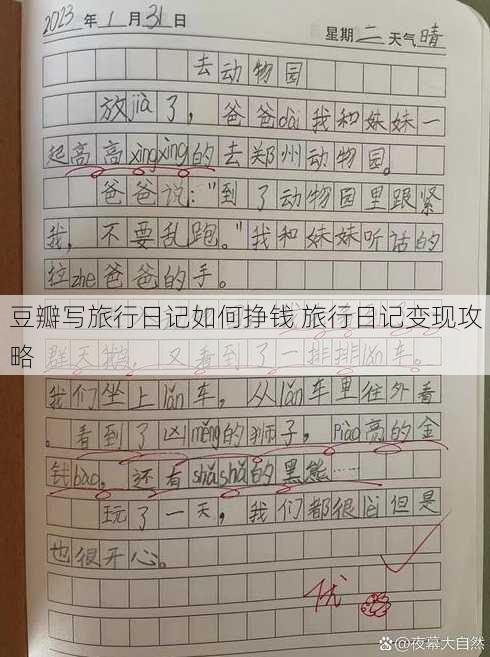 2023年1月31日 星期二 天气晴
去动物园
放jià了，爸爸dài我和妹妹一
起高高xìngxìng的去郑州动物园。
爸爸说："到了动物园里跟紧
我，不要乱跑。"我和妹妹听话的
拉zhe爸爸的手。
豆瓣写旅行日记如何挣钱 旅行日记变现攻
略
群天鹅，又看到了一排排lǎn车。
我们坐上lǎn车，从lǎn车里往外看
。看到了凶měng的狮子，piào亮的金
钱bào，还有shǎshǎ的黑熊……
玩了一天，我们都很lèi但是
也很开心。
优
@夜幕大自然